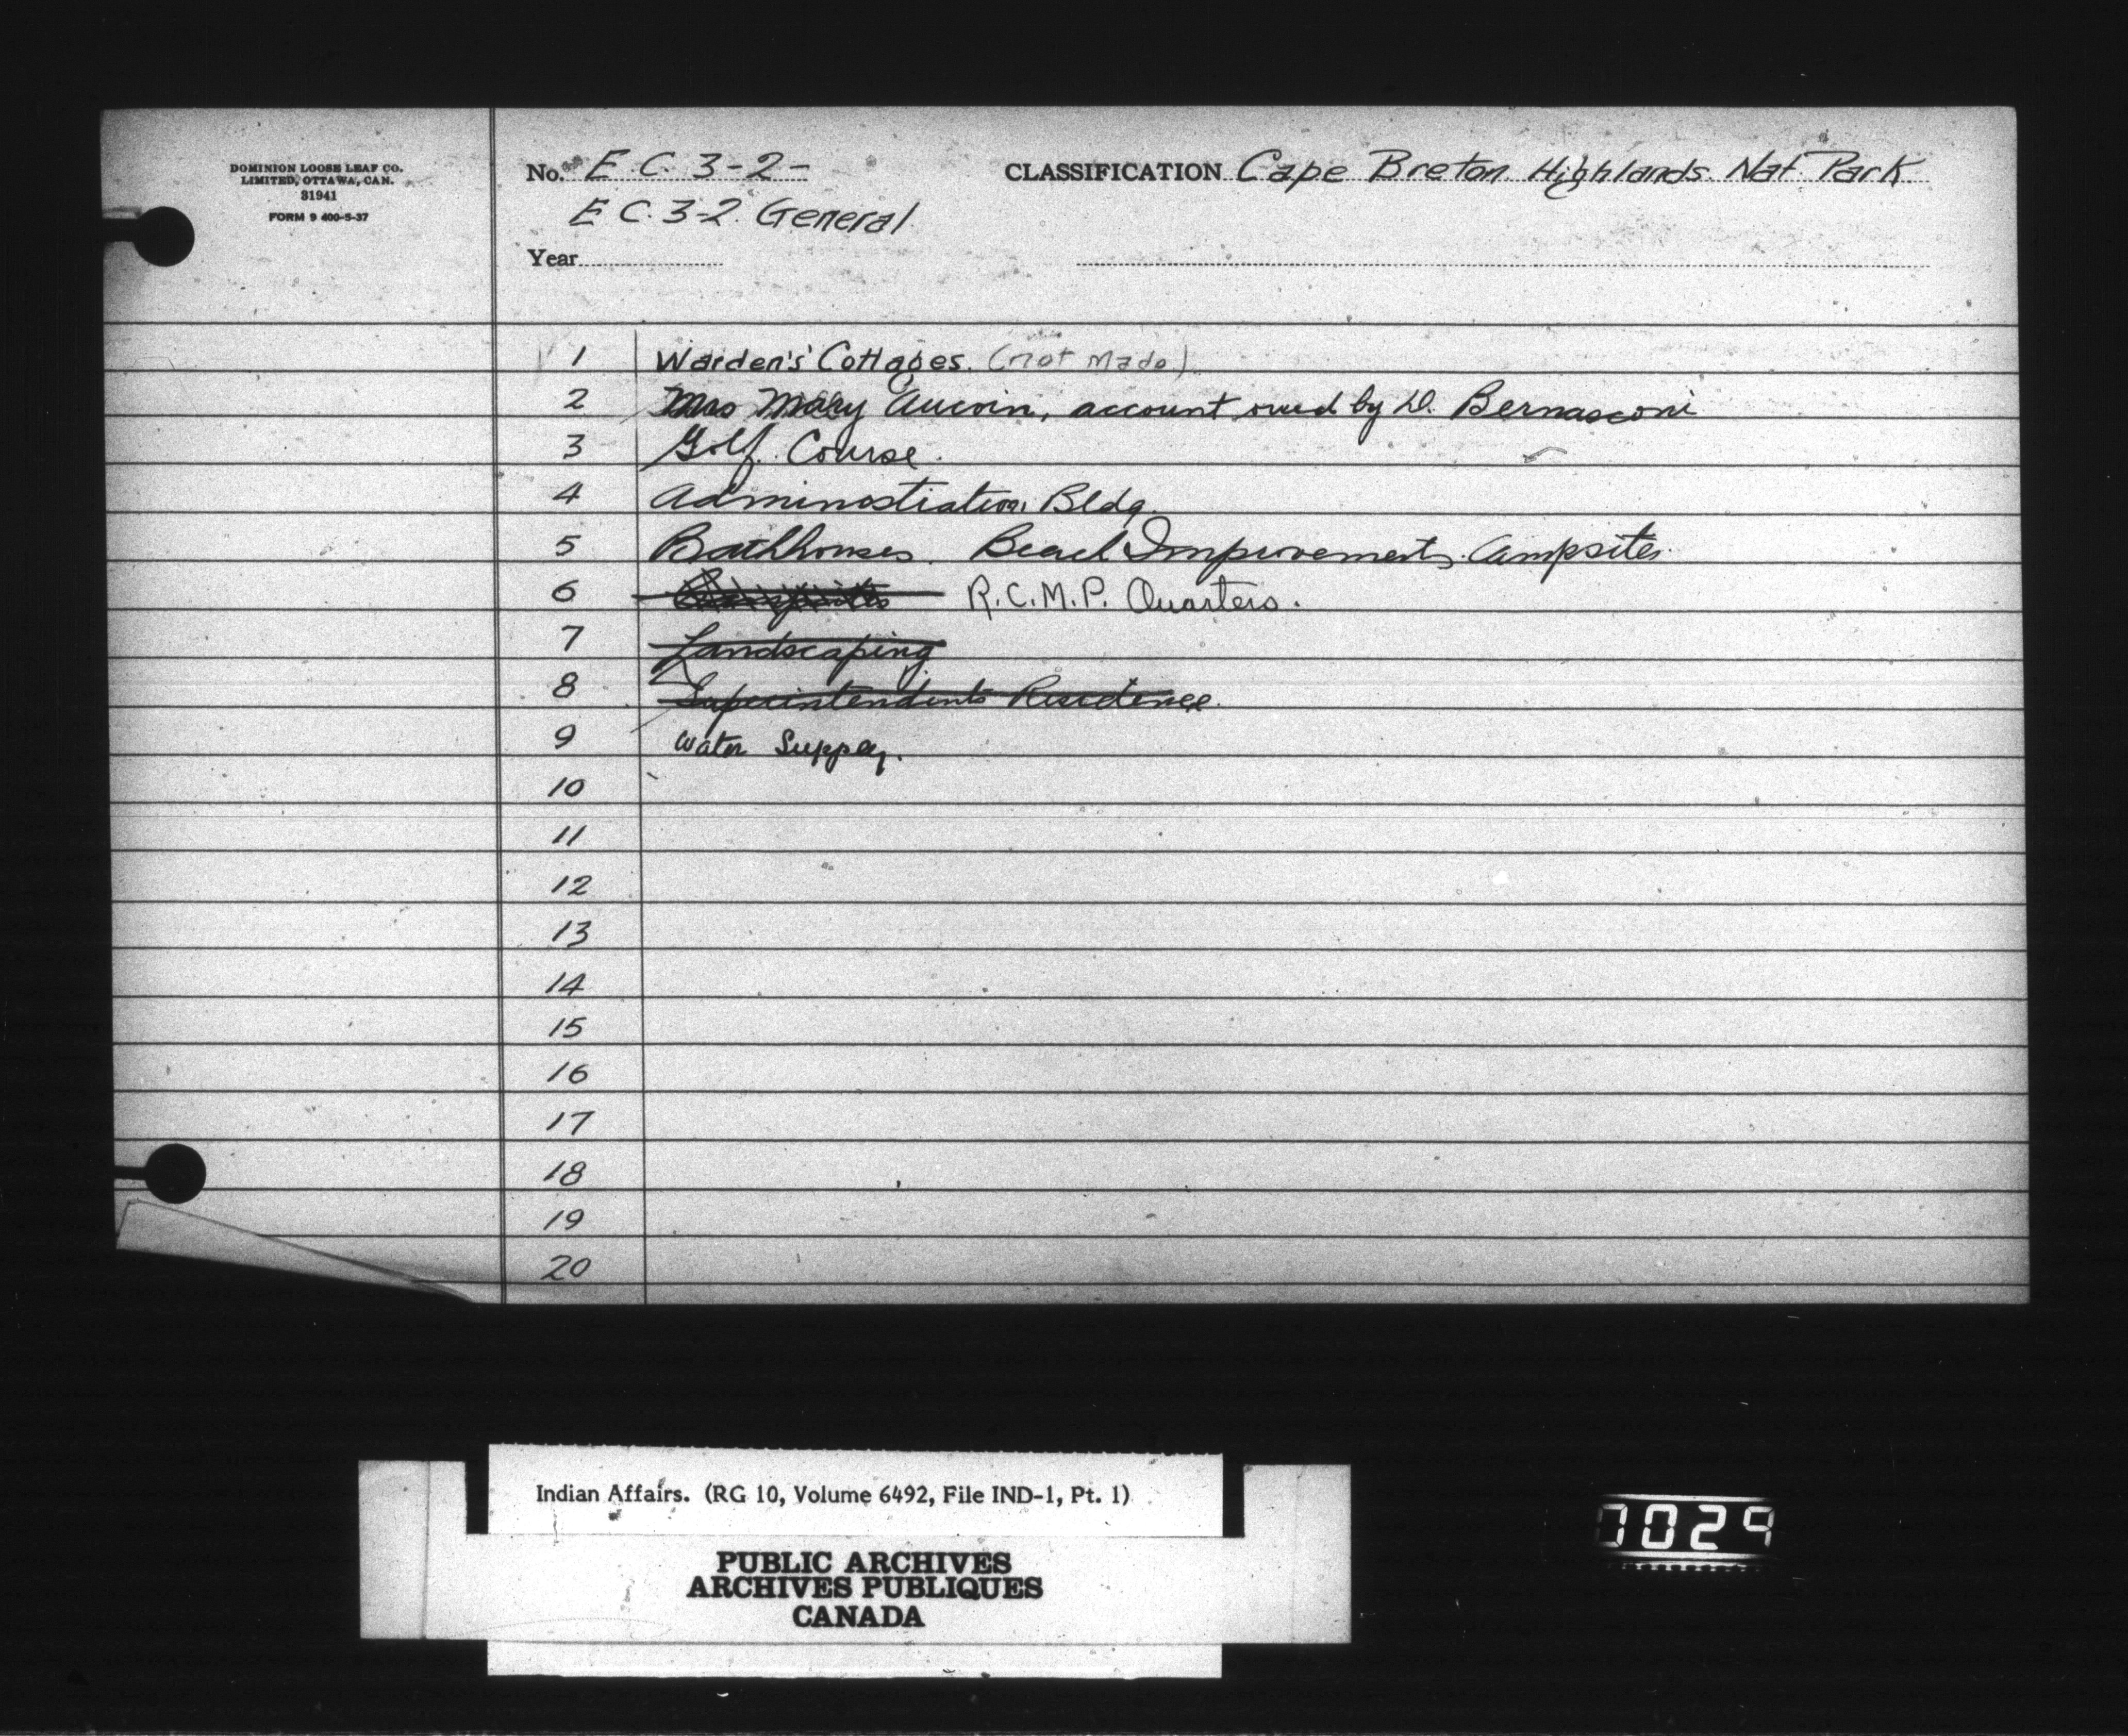 DOMINION LOOSE LEAF CO.
LIMITED, OTTAWA, CAN.
31941
FORM 9 400-5-37
No. E.C. 3-2-
CLASSIFICATION Cape Breton Highlands Nat. Park
E.C. 3-2. General
Year
1 Warden's Cottages. (not made)
2 Mrs Mary Aucoin, account owed by D. Bernasconi
3 Golf Course.
4 Administration Bldg.
5 Bathhouses. Beach Improvements. Campsites.
6 Campsites R.C.M.P. Quarters.
7 Landscaping
8 Superintendents Residence.
9 Water Supply.
10
11
12
13
14
15
16
17
18
19
20
Indian Affairs. (RG 10, Volume 6492, File IND-1, Pt. 1)
PUBLIC ARCHIVES
ARCHIVES PUBLIQUES
CANADA
0029